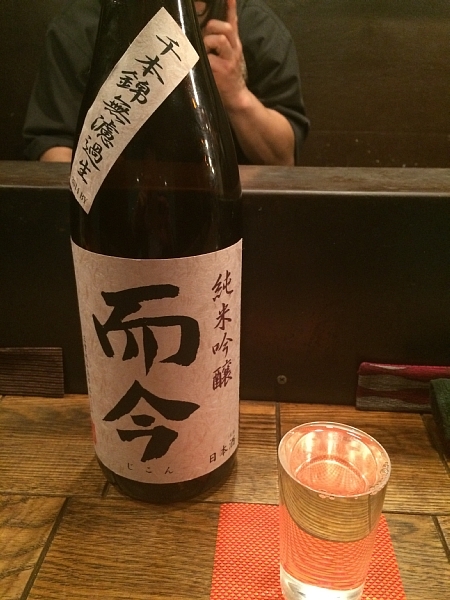 千本錦無濾過生
純米吟醸
而今
じこん
日本酒